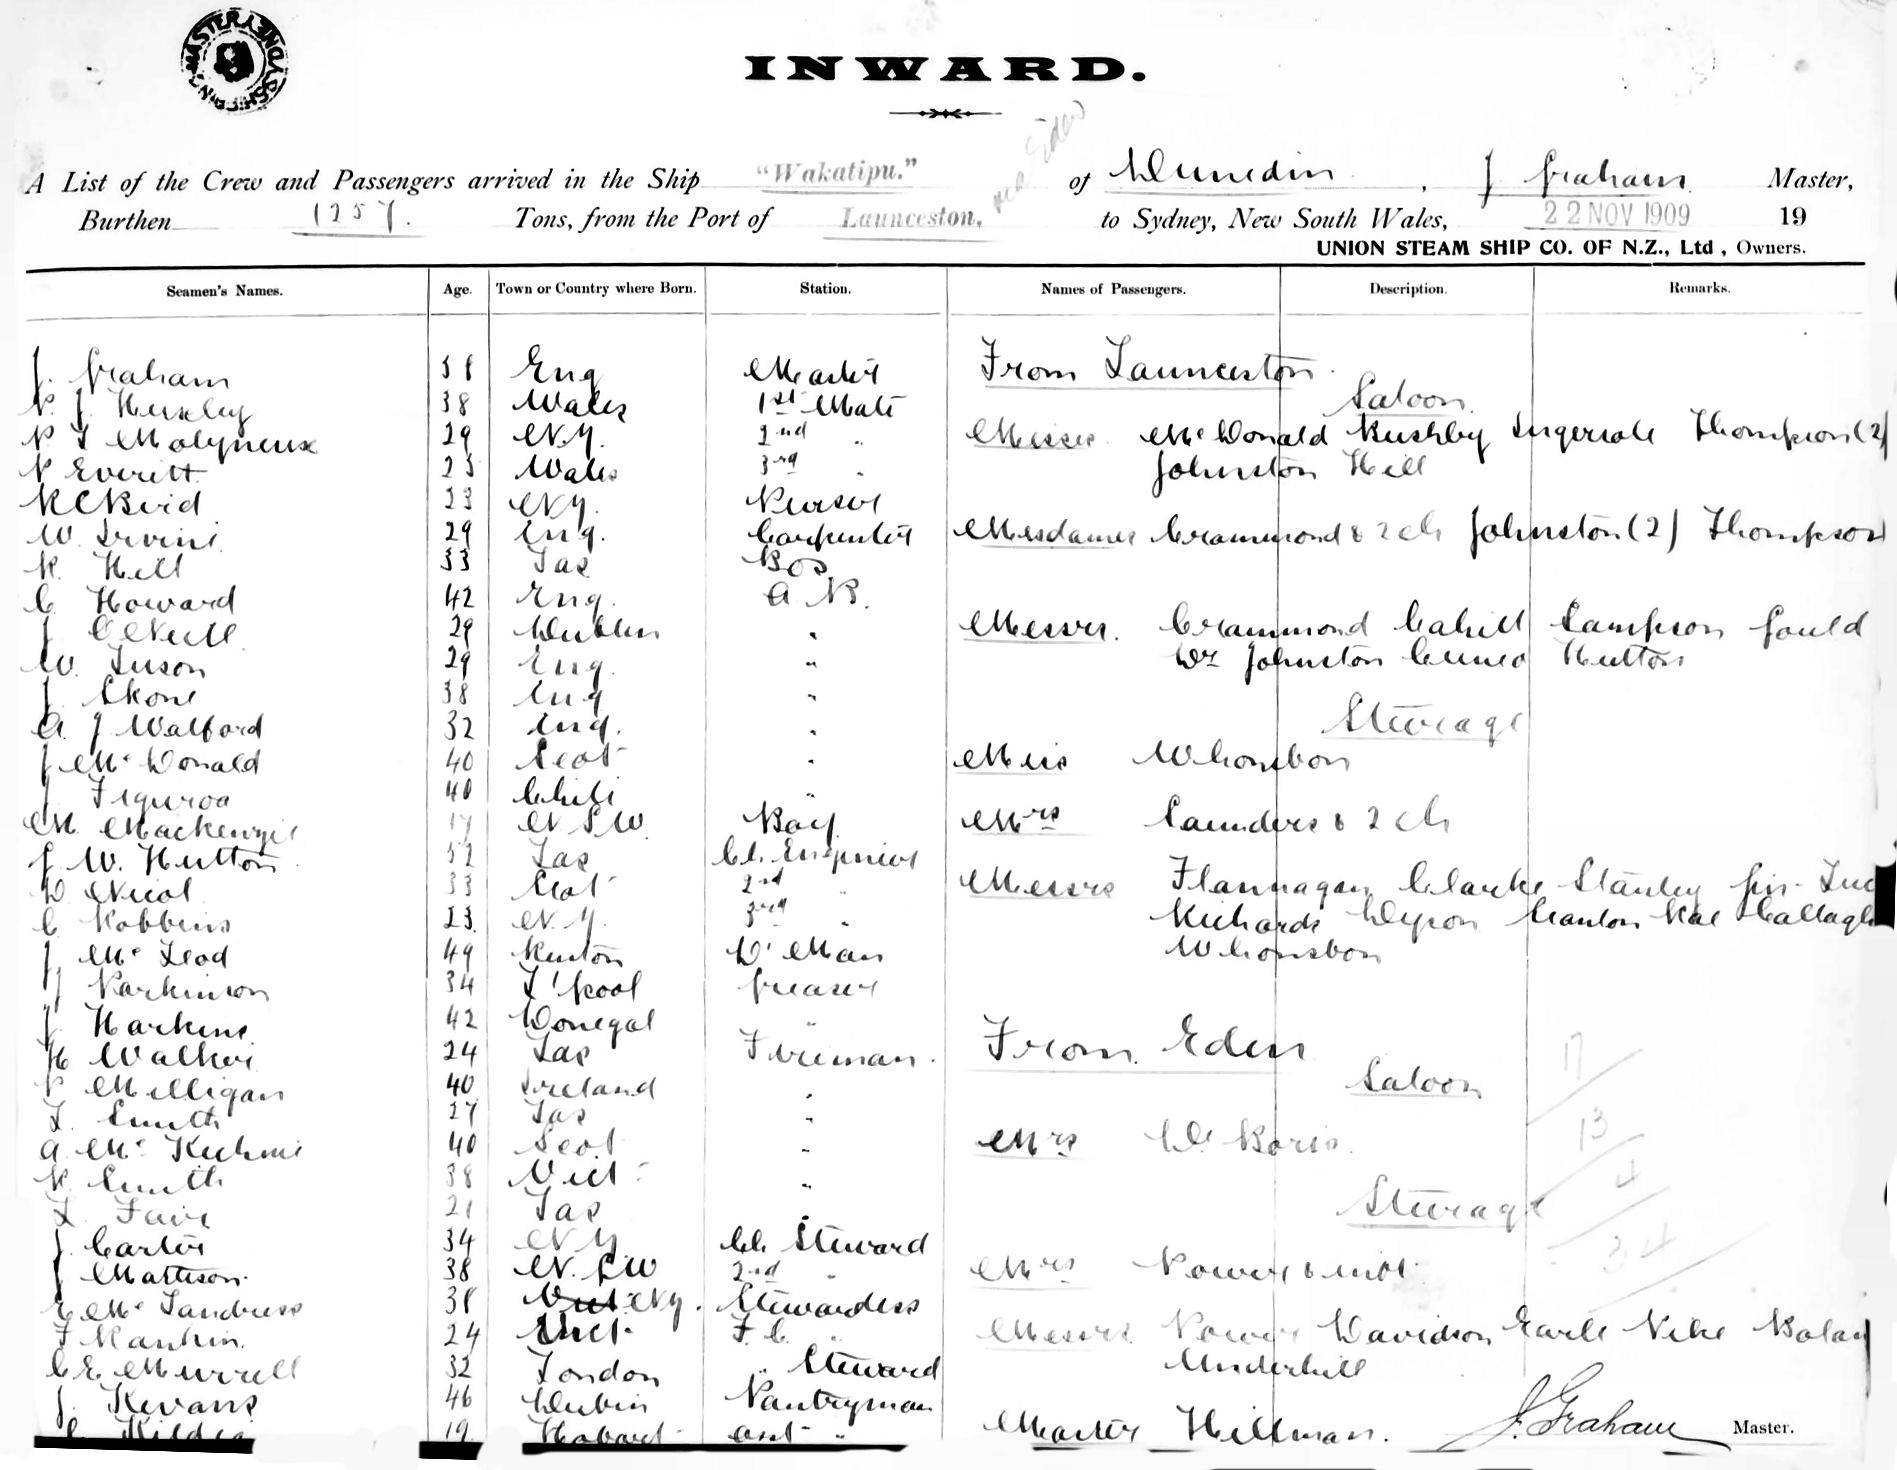 MASTER SHIPPING SYDNEY
INWARD.
via Eden
A List of the Crew and Passengers arrived in the Ship "Wakatipu." of Dunedin, J Graham Master,
Burthen 1257. Tons, from the Port of Launceston. to Sydney, New South Wales, 22 NOV 1909 19
UNION STEAM SHIP CO. OF N.Z., Ltd, Owners.
Seamen's Names. Age. Town or Country where Born. Station. Names of Passengers. Description. Remarks.
J. Graham 58 Eng Master
P. J. Huxley 38 Wales 1st Mate
P L Molyneux 29 N.Z. 2nd "
P Everitt 25 Wales 3rd "
R C Bird 23 NZ. Purser
W. Irvine 29 Eng. Carpenter
R. Hill 33 Tas Bos
C. Howard 42 Eng. A B.
J O'Neill 29 Dublin "
W. Luson 29 Eng. "
J Skone 38 Eng "
A. J Walford 32 Eng. "
J McDonald 40 Scot "
J Figuroa 40 Chili "
M. Mackenzie 17 N S W. Boy
J. W. Hutton 52 Tas Ch. Engineer
D Nicol 33 Scot 2nd "
C. Robbins 23. N. Z. 3rd "
J McLeod 49 Renton D' Man
J Parkinson 34 L'pool Greaser
J Harkins 42 Donegal "
H Walker 24 Tas Fireman.
P Milligan 40 Ireland "
L. Smith 27 Tas "
A McKechnie 40 Scot "
R. Smith 38 Vict "
L. Fair 21 Tas "
J. Carter 34 N Z Ch. Steward
J Mattison. 38 N. S W 2nd "
E McLandress 38 Vict NZ. Stewardess
F Rankin. 24 Vict. F. C. "
C E Murrell 32 London " Steward
J. Kevans 46 Dublin Pantryman
C Kildea 19 Hobart asst "
From Launceston.
Saloon.
Messrs. McDonald Rushby Ingersole Thompson (2)
Johnston Hill
Mesdames Crammond & 2 ch Johnston (2) Thompson
Messrs. Crammond Cahill Sampson Gould
Dr Johnston Cuneo Hutton
Steerage
Miss Whonsbon
Mrs Saunders & 2 ch
Messrs Flannagan Clarke Stanley
Richards Dyson Canton Rae
Whonsbon
From Eden
Saloon
Mrs Boris.
Steerage
Mrs Power & inft.
Messrs Power Davidson Earle Pike
Underhill
Master Hillman.
17
13
4
34
J. Graham Master.